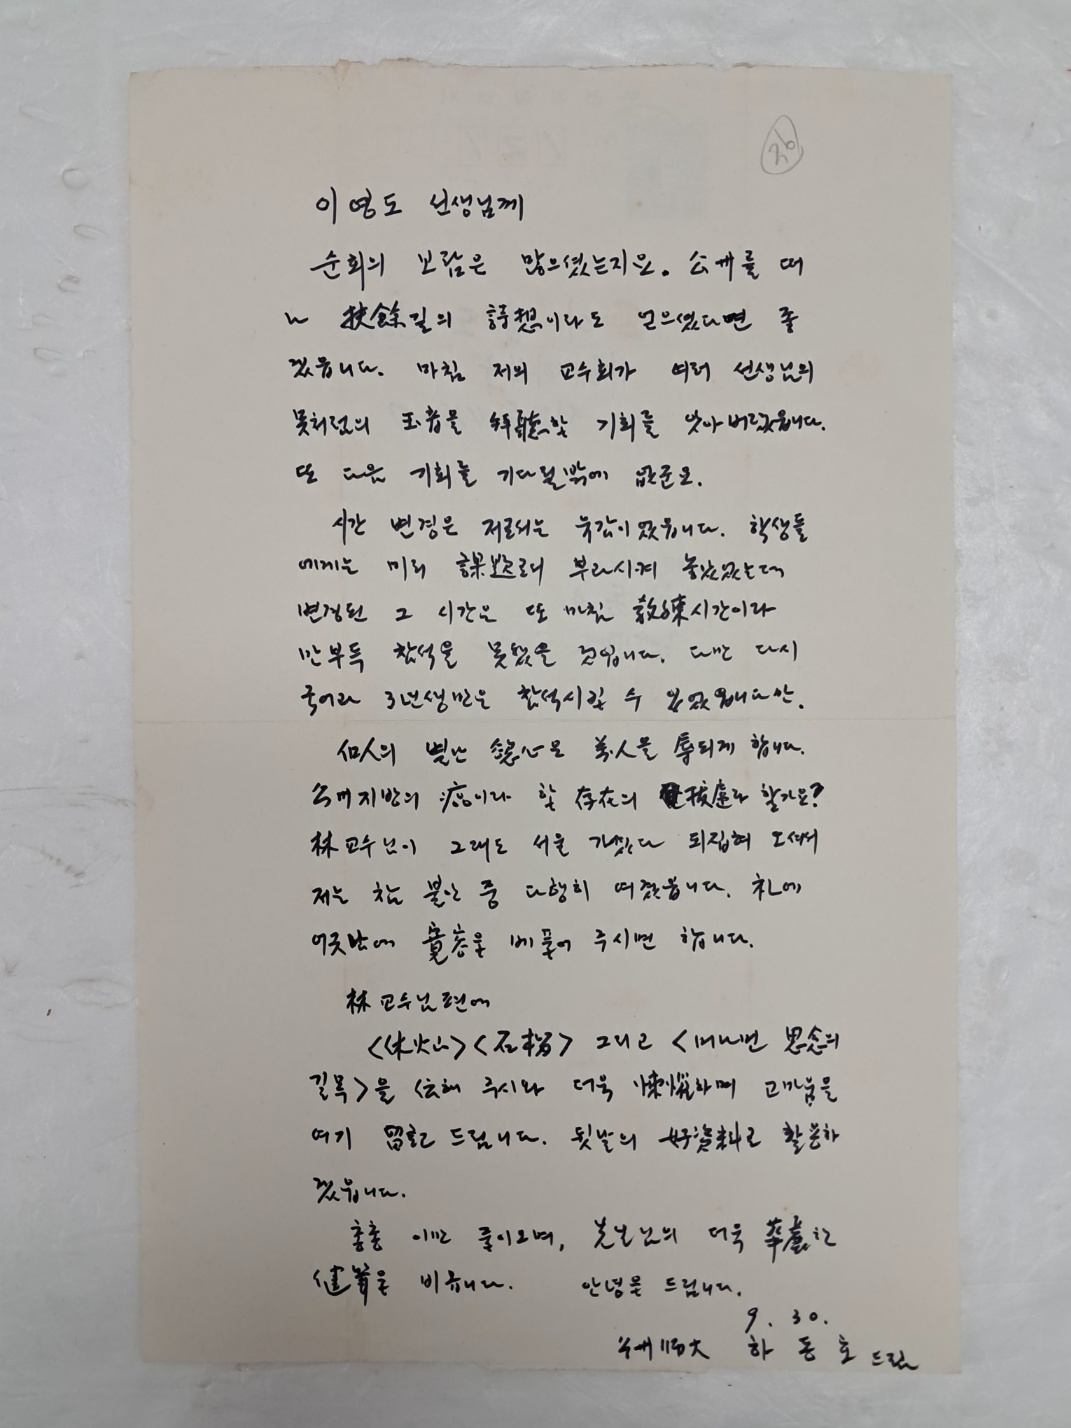 이영도 선생님께
순회의 보람은 많으셨는지요. 公州를 떠
나 扶餘길의 詩想이라도 얻으셨다면 좋
겠읍니다. 마침 저의 교수회가 여러 선생님의
모처럼의 玉音을 拜聽할 기회를 앗아버렸읍니다.
또 다음 기회를 기다릴밖에 없군요.
시간 변경은 저로서는 육감이었읍니다. 학생들
에게는 미리 課題로 부과시켜 놓았었는데
변경된 그 시간은 또 마침 敎練시간이라
만부득 참석을 못했을 것입니다. 다만 다시
국어과 3년생만은 참석시킬 수 있었읍니다만.
個人의 별난 慾心은 萬人을 辱되게 합니다.
公州지방의 癌이라 할 存在의 拔扈라 할가요?
林교수님이 그래도 서울 가셨다 되집혀 오셔서
저는 참 불안 중 다행히 여겼읍니다. 礼에
어긋남에 寬容을 베풀어 주시면 합니다.
林교수님편에
<休火山> <石榴> 그리고 <머나먼 思念의
길목>을 伝해 주시와 더욱 하며 고마움을
여기 留記 드립니다. 뒷날의 好資料로 활용하
겠읍니다.
총총 이만 줄이오며, 앞날의 더욱 華麗한
健筆을 비옵니다. 안녕을 드립니다.
9. 30.
公州師大 하동호 드림